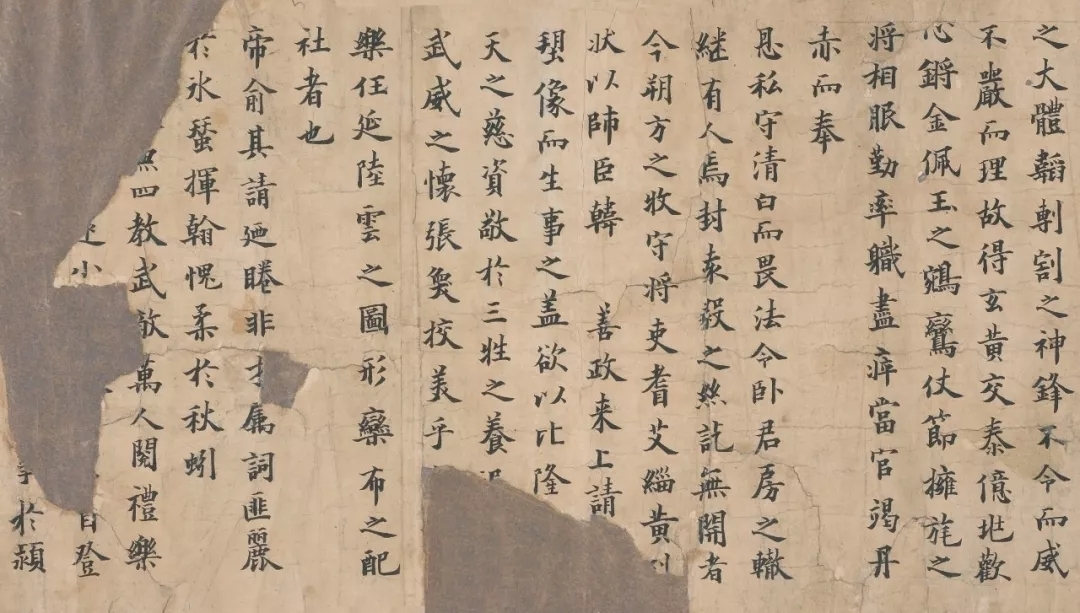 之大體韜剸割之神鋒不令而威
不嚴而理故得玄黄交泰億兆歡
心鏘金佩玉之鵷鸞仗節擁旄之
将相服勤率職盡瘁當官竭丹
赤而奉
恩私守清白而畏法令卧君房之轍
継有人焉封袁毅之絲訖無開者
今朔方之牧守将吏耆艾緇黄
状以師臣韓 善政来上請
塑像而生事之盖欲以比隆
天之慈資敬於三牲之養
武威之懷張奐挍美乎
樂任延陸雲之圖形欒布之配
社者也
帝俞其請廼睠非才属詞匪麗
於氷蚕揮翰愧柔於秋蚓
四教武敵萬人閲禮樂
小 登
於潁